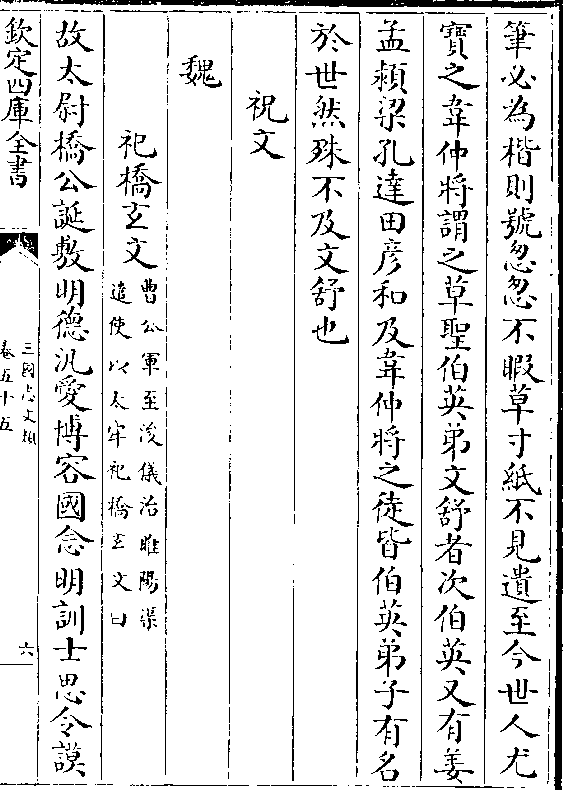 筆必為楷則號忽忽不暇草寸紙不見遺至今世人尤
寶之韋仲將謂之草聖伯英弟文舒者次伯英又有姜
孟頴梁孔達田彦和及韋仲將之徒皆伯英弟子有名
於世然殊不及文舒也
祝文
魏
祀橋玄文
曹公軍至浚儀治睢陽渠
遣使以太牢祀橋玄文曰
故太尉橋公誕敷明徳汎愛博容國念明訓士思令謨
欽定四庫全書
三國志文類
卷五十五
六